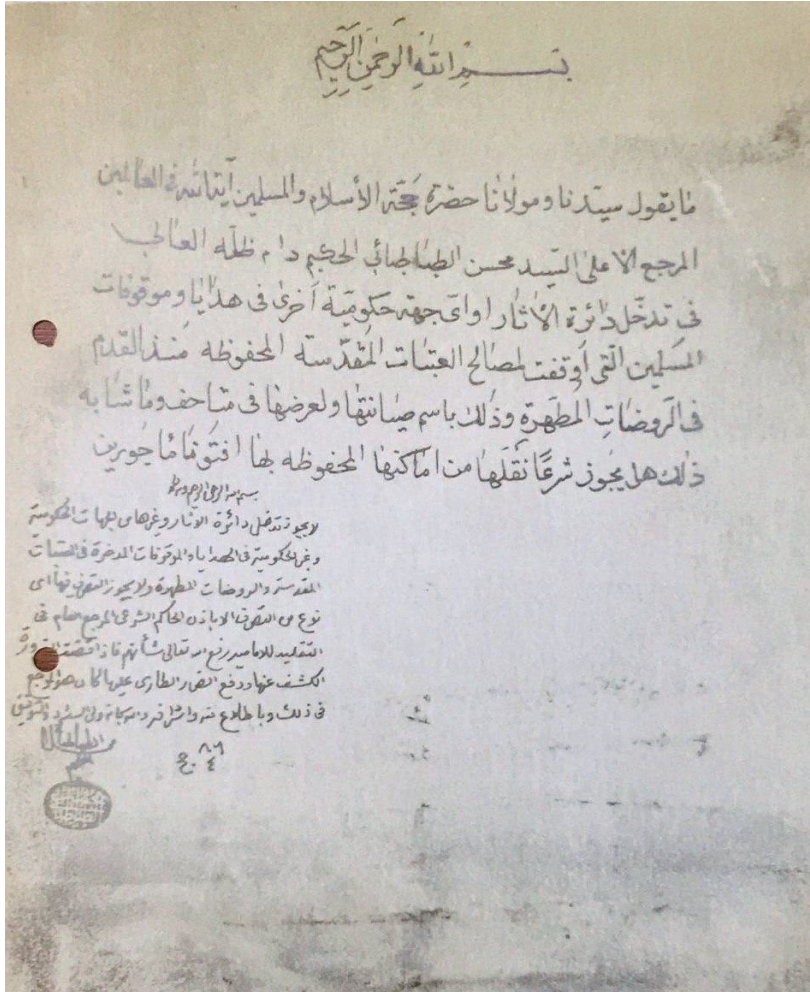 بسم الله الرحمن الرحيم
ما يقول سيدنا ومولانا حضرة حجة الأسلام والمسلمين آية الله في العالمين
المرجع الأعلى السيد محسن الطباطبائي الحكيم دام ظله العالي
في تدخل دائرة الأثار او اي جهة حكومية أخرى في هدايا وموقوفات
المسلمين التي أوقفت لمصالح العتبات المقدسة المحفوظه منذ القدم
في الروضات المطهرة وذلك باسم صيانتها ولعرضها في متاحف وما شابه
ذلك هل يجوز شرعًا نقلها من اماكنها المحفوظه بها افتونا مأجورين
بسم الله الرحمن الرحيم وله الحمد
لا يجوز تدخل دائرة الاثار وغيرها من الجهات الحكومية
وغير الحكومية في الهدايا والموقوفات المدخرة في العتبات
المقدسة والروضات المطهرة ولا يجوز التصرف فيها اي
نوع من التصرف الا باذن الحاكم الشرعي المرجع العام في
التقليد للامامية رفع الله تعالى شأنهم فاذا اقتضت الضرورة
الكشف عنها ودفع الضرر الطارئ عليها كان هو المرجع
في ذلك وباطلاع منه واشراف والله سبحانه ولي التسديد والتوفيق
محسن الطباطبائي الحكيم
٤ ج ٨٦